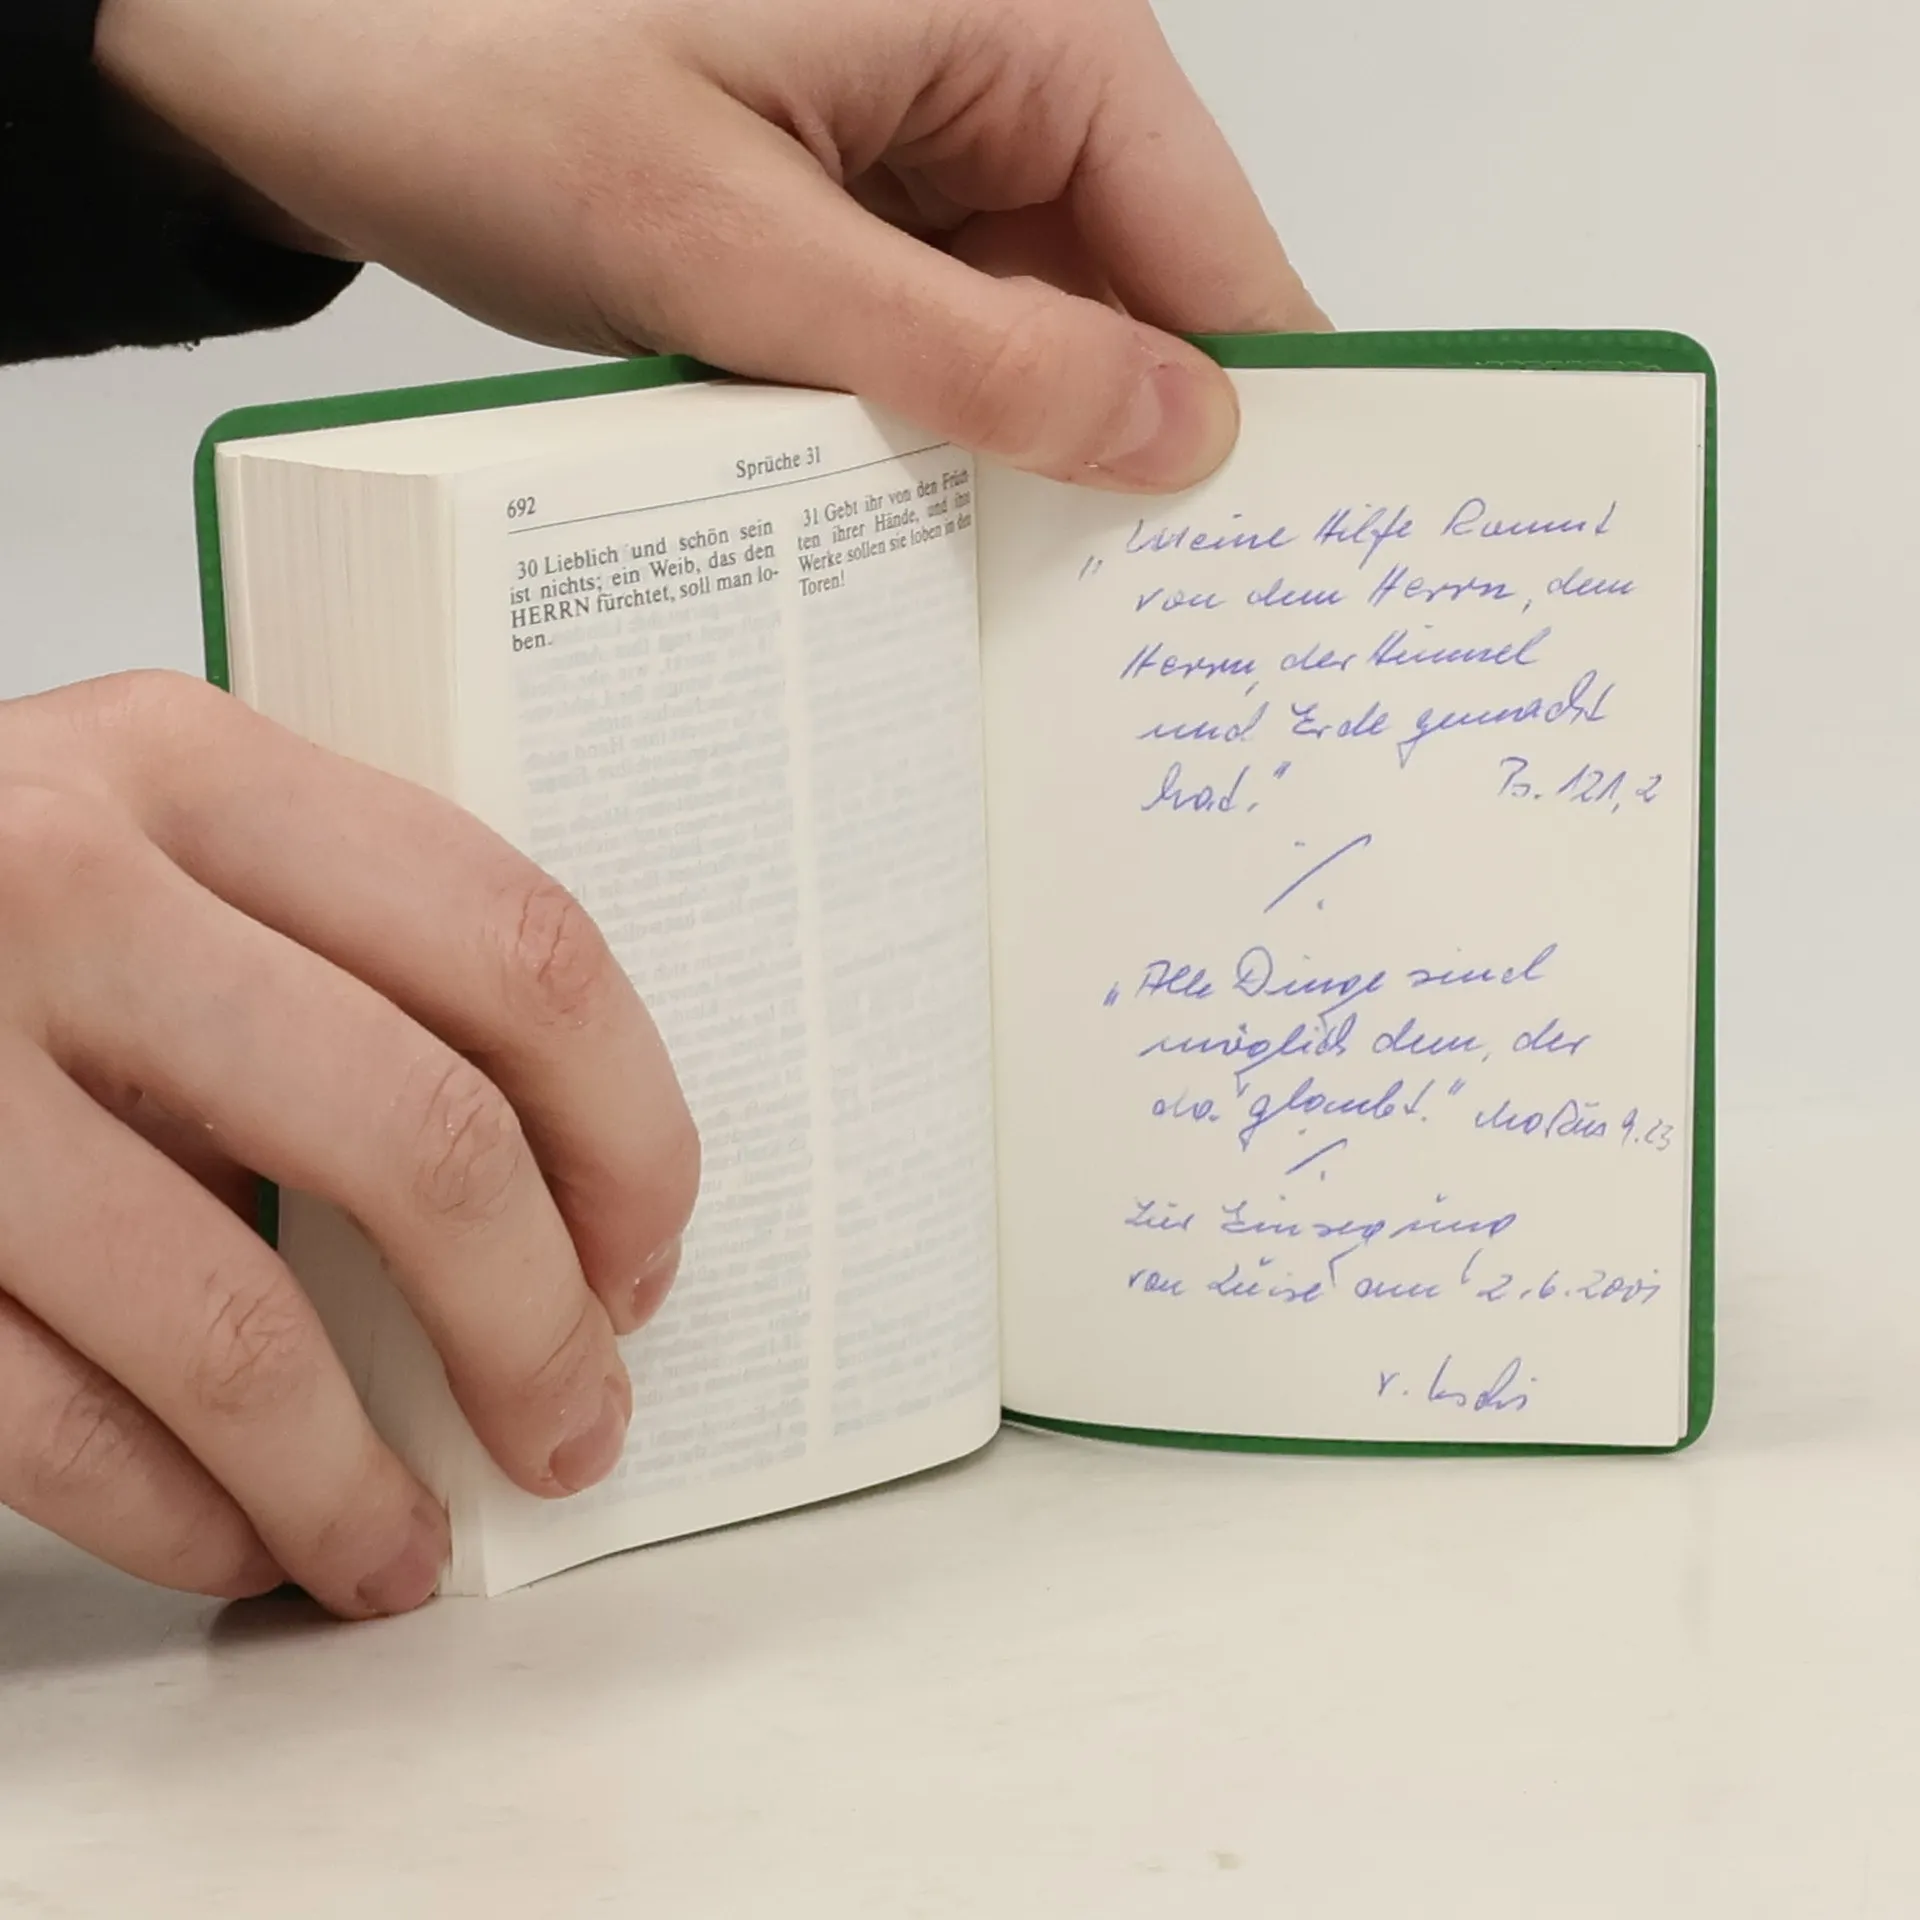 692
Sprüche 31
30 Lieblich und schön sein
ist nichts; ein Weib, das den
HERRN fürchtet, soll man lo-
ben.
31 Gebt ihr von den Früch-
ten ihrer Hände, und ihre
Werke sollen sie loben in den
Toren!
„Meine Hilfe kommt
von dem Herrn, dem
Herrn, der Himmel
und Erde gemacht
hat."
Ps. 121,2
./.
„Alle Dinge sind
möglich dem, der
da glaubt." Markus 9.23
./.
Zur Einsegnung
von Luise am 2.6.2001
v.